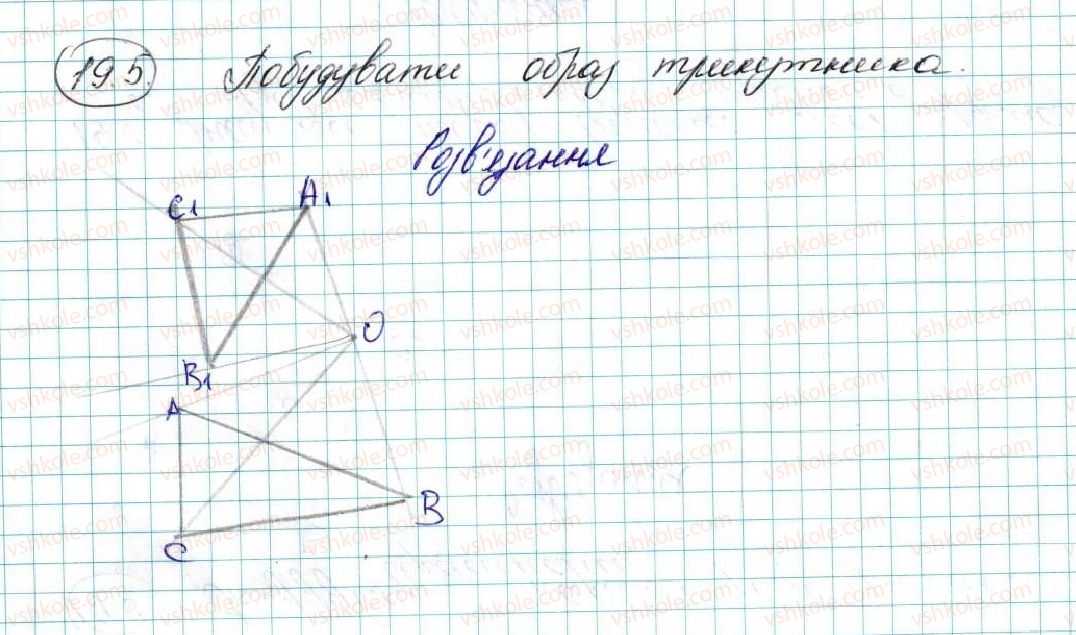 19.5. Побудувати образ трикутника.
Розв'язання
C1 A1
O
B1
A
B
C
vshkole.com